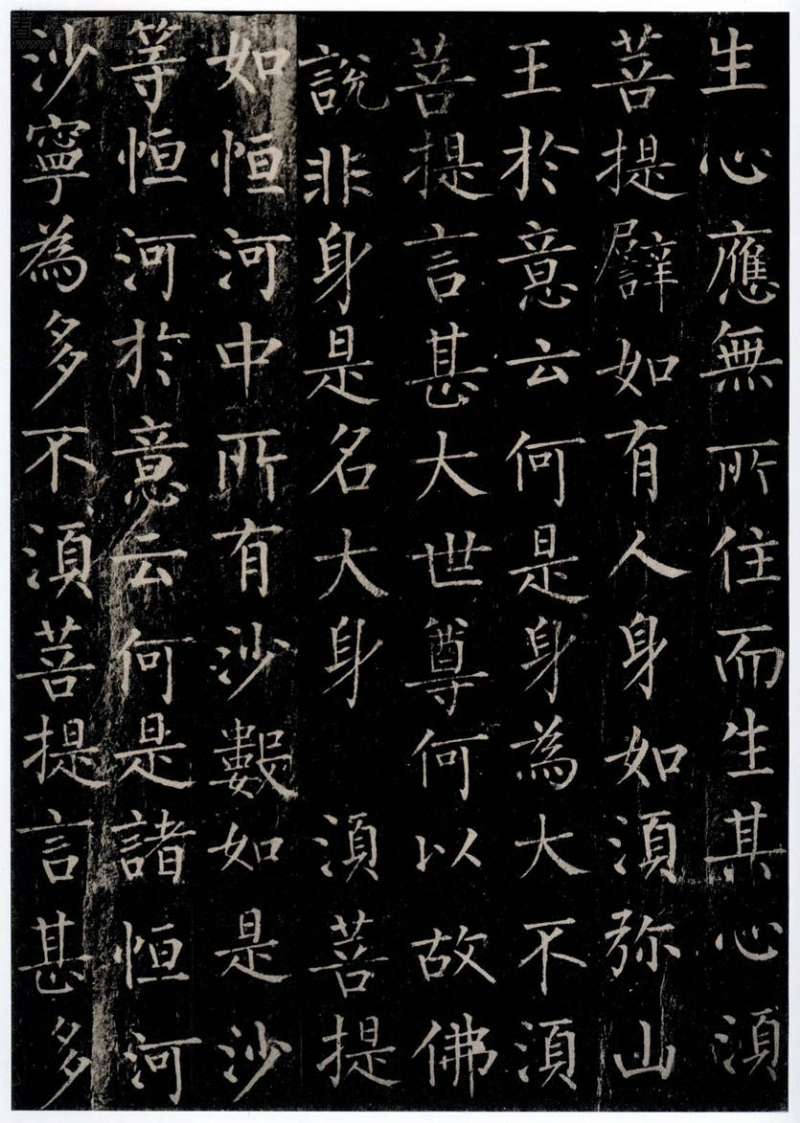 生心應無所住而生其心湏
菩提譬如有人身如湏弥山
王扵意云何是身為大不湏
菩提言甚大世尊何以故佛
說非身是名大身 湏菩提
如恒河中所有沙數如是沙
等恒河扵意云何是諸恒河
沙寧為多不湏菩提言甚多